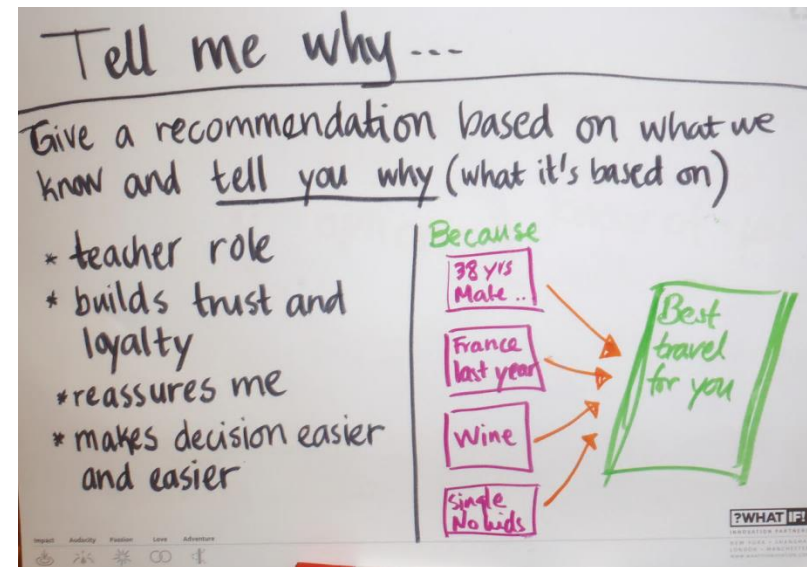 Tell me why...
Give a recommendation based on what we
know and tell you why (what it's based on)
* teacher role
* builds trust and
loyalty
* reassures me
* makes decision easier
and easier
Because
38 yrs
Male ..
France
last year
Wine
Single
No kids
Best
travel
for you
?WHAT IF!
INNOVATION PARTNERS
Impact Audacity Passion Love Adventure